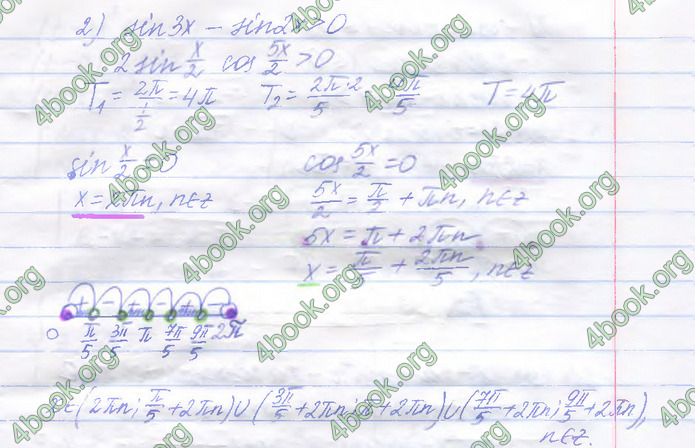 2) sin3x − sin2x > 0
2 sin x/2 cos 5x/2 > 0
T₁ = 2π/(1/2) = 4π T₂ = 2π·2/5 4π/5 T = 4π
sin x/2 = 0 cos 5x/2 = 0
x = 2πn, n∈z 5x/2 = π/2 + πn, n∈z
5x = π + 2πn
x = π/5 + 2πn/5, n∈z
+ − + − + −
0 π/5 3π/5 π 7π/5 9π/5 2π
x∈(2πn; π/5 + 2πn)∪(3π/5 + 2πn; π + 2πn)∪(7π/5 + 2πn; 9π/5 + 2πn),
n∈z.
4book.org